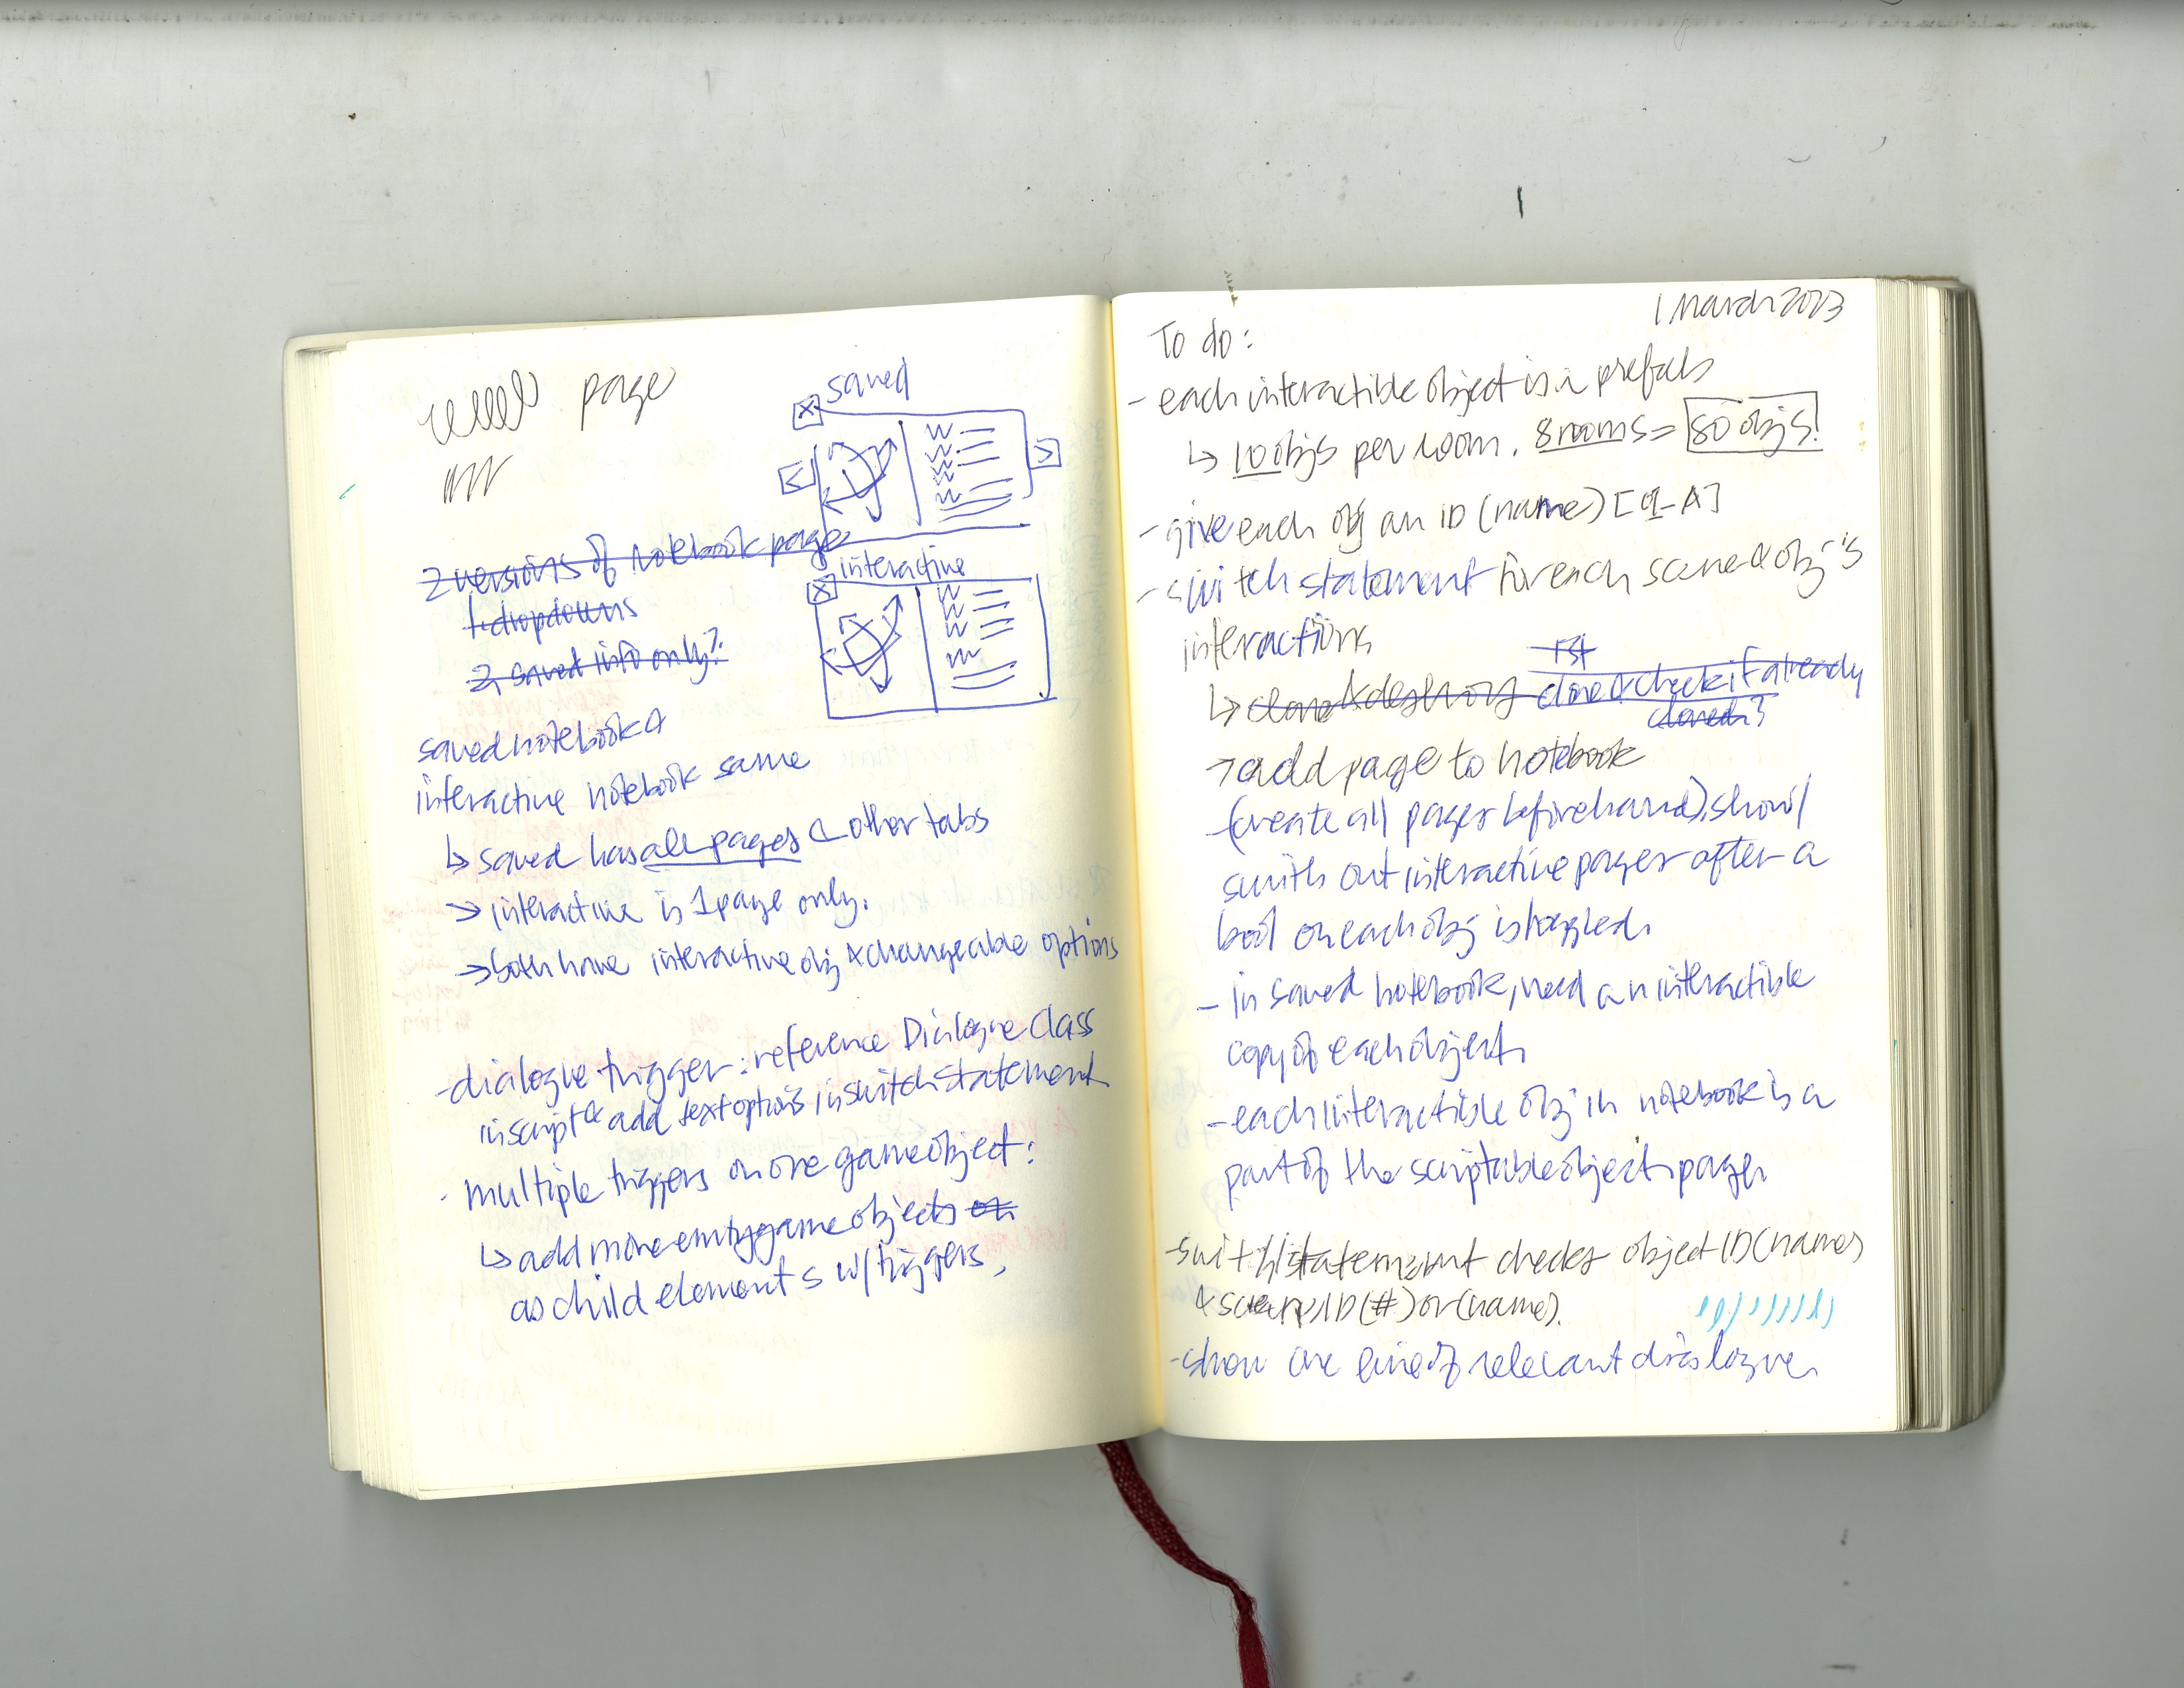 page
saved
2 versions of notebook pages
interactive
1. dropdowns
2. saved info only?
saved notebook &
interactive notebook same
↳ saved has all pages & other tabs
→ interactive is 1 page only.
→ both have interactive obj & changeable options
- dialogue trigger: reference Dialogue Class
in script & add text options in switch statement
- multiple triggers on one game object:
↳ add more empty game objects
as child elements w/ triggers,
1 March 2023
To do:
- each interactible object is in prefabs
↳ 10 objs per room. 8 rooms = 80 objs!
- give each obj an ID (name)
- switch statement for each scene & obj's
interactions
↳ clone & destroy clone & check if already
cloned?
→ add page to notebook
- (create all pages beforehand), show/
switch out interactive pages after a
bool on each obj is toggled.
- in saved notebook, need an interactible
copy of each object.
- each interactible obj in notebook is a
part of the scriptable object pages
- switch statement checks object ID (name)
& scene ID (#) or (name).
- show one line of relevant dialogue